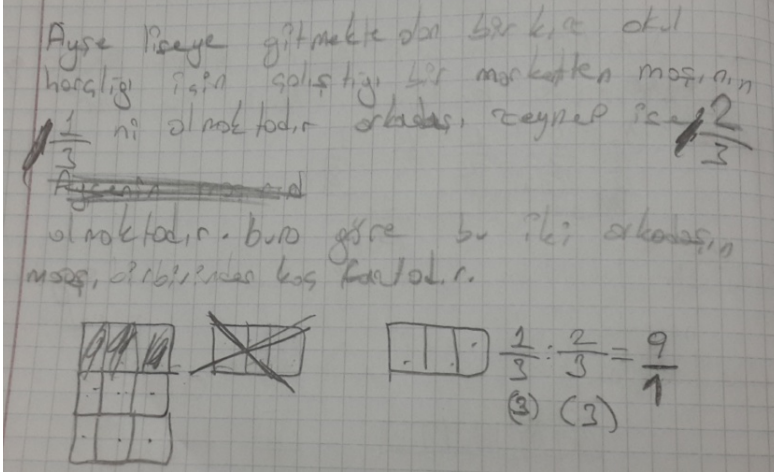 Ayşe liseye gitmekte olan bir kız okul
harçlığı için çalıştığı bir marketten maaşının
1/3 ni almaktadır arkadaşı zeynep ise 2/3
almaktadır. buna göre bu iki arkadaşın
maaşı birbirinden kaç fazladır.
1/3 : 2/3 = 9/1
(3) (3)